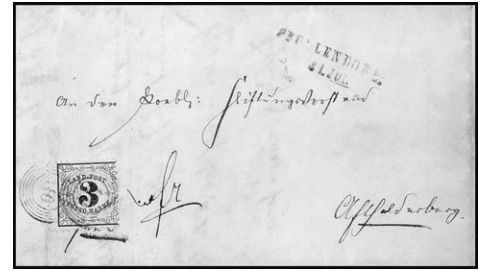 PFULLENDORF.
JUL.
An den Loebl: Stiftungsvorstand
LAND-POST
3
PORTO-MARKE
Aftholderberg.